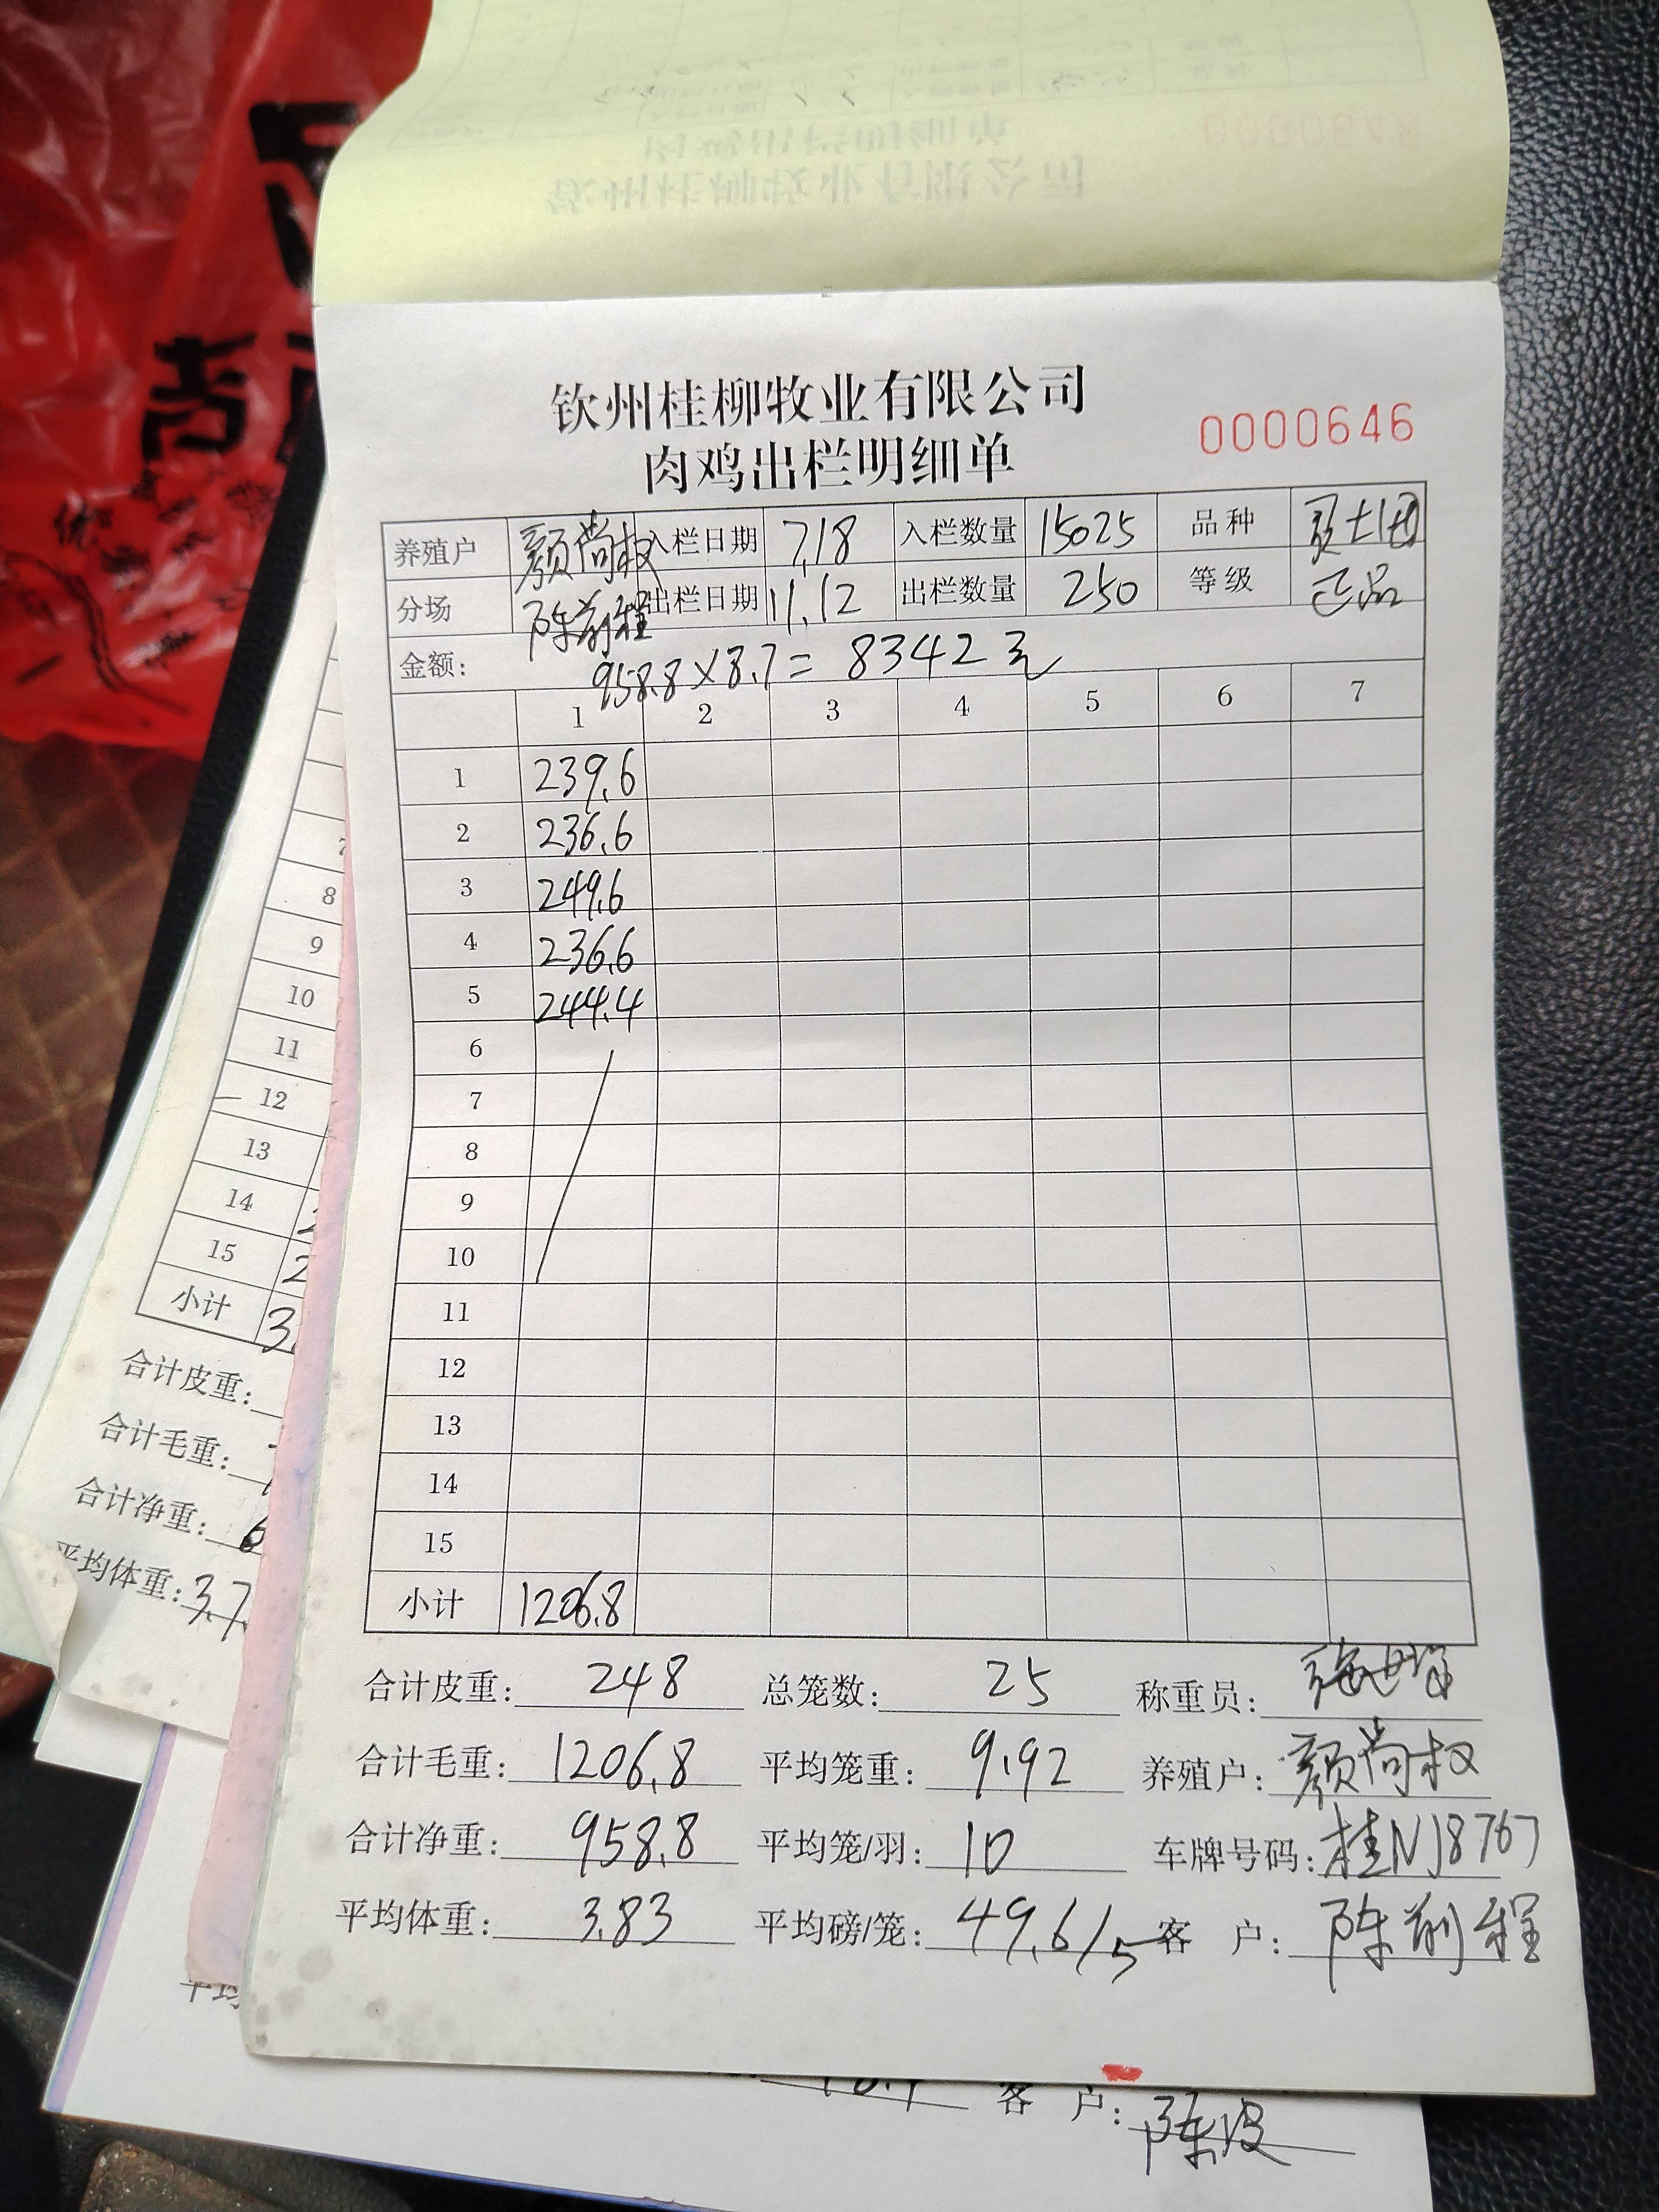 钦州桂柳牧业有限公司
肉鸡出栏明细单
0000646
养殖户 颜尚权 入栏日期 7.18 入栏数量 15025 品种
分场 陈前程 出栏日期 11.12 出栏数量 250 等级 正品
金额: 958.8×8.7=8342元
1 2 3 4 5 6 7
1 239.6
2 236.6
3 249.6
4 236.6
5 244.4
6
7
8
9
10
11
12
13
14
15
小计 1206.8
合计皮重: 248 总笼数: 25 称重员:
合计毛重: 1206.8 平均笼重: 9.92 养殖户: 颜尚权
合计净重: 958.8 平均笼/羽: 10 车牌号码: 桂NJ8767
平均体重: 3.83 平均磅/笼: 49.6/5 客 户: 陈前程
8
9
10
11
12
13
14
15
小计 3
合计皮重:
合计毛重:
合计净重: 6
平均体重: 3.7
客 户: 陈波